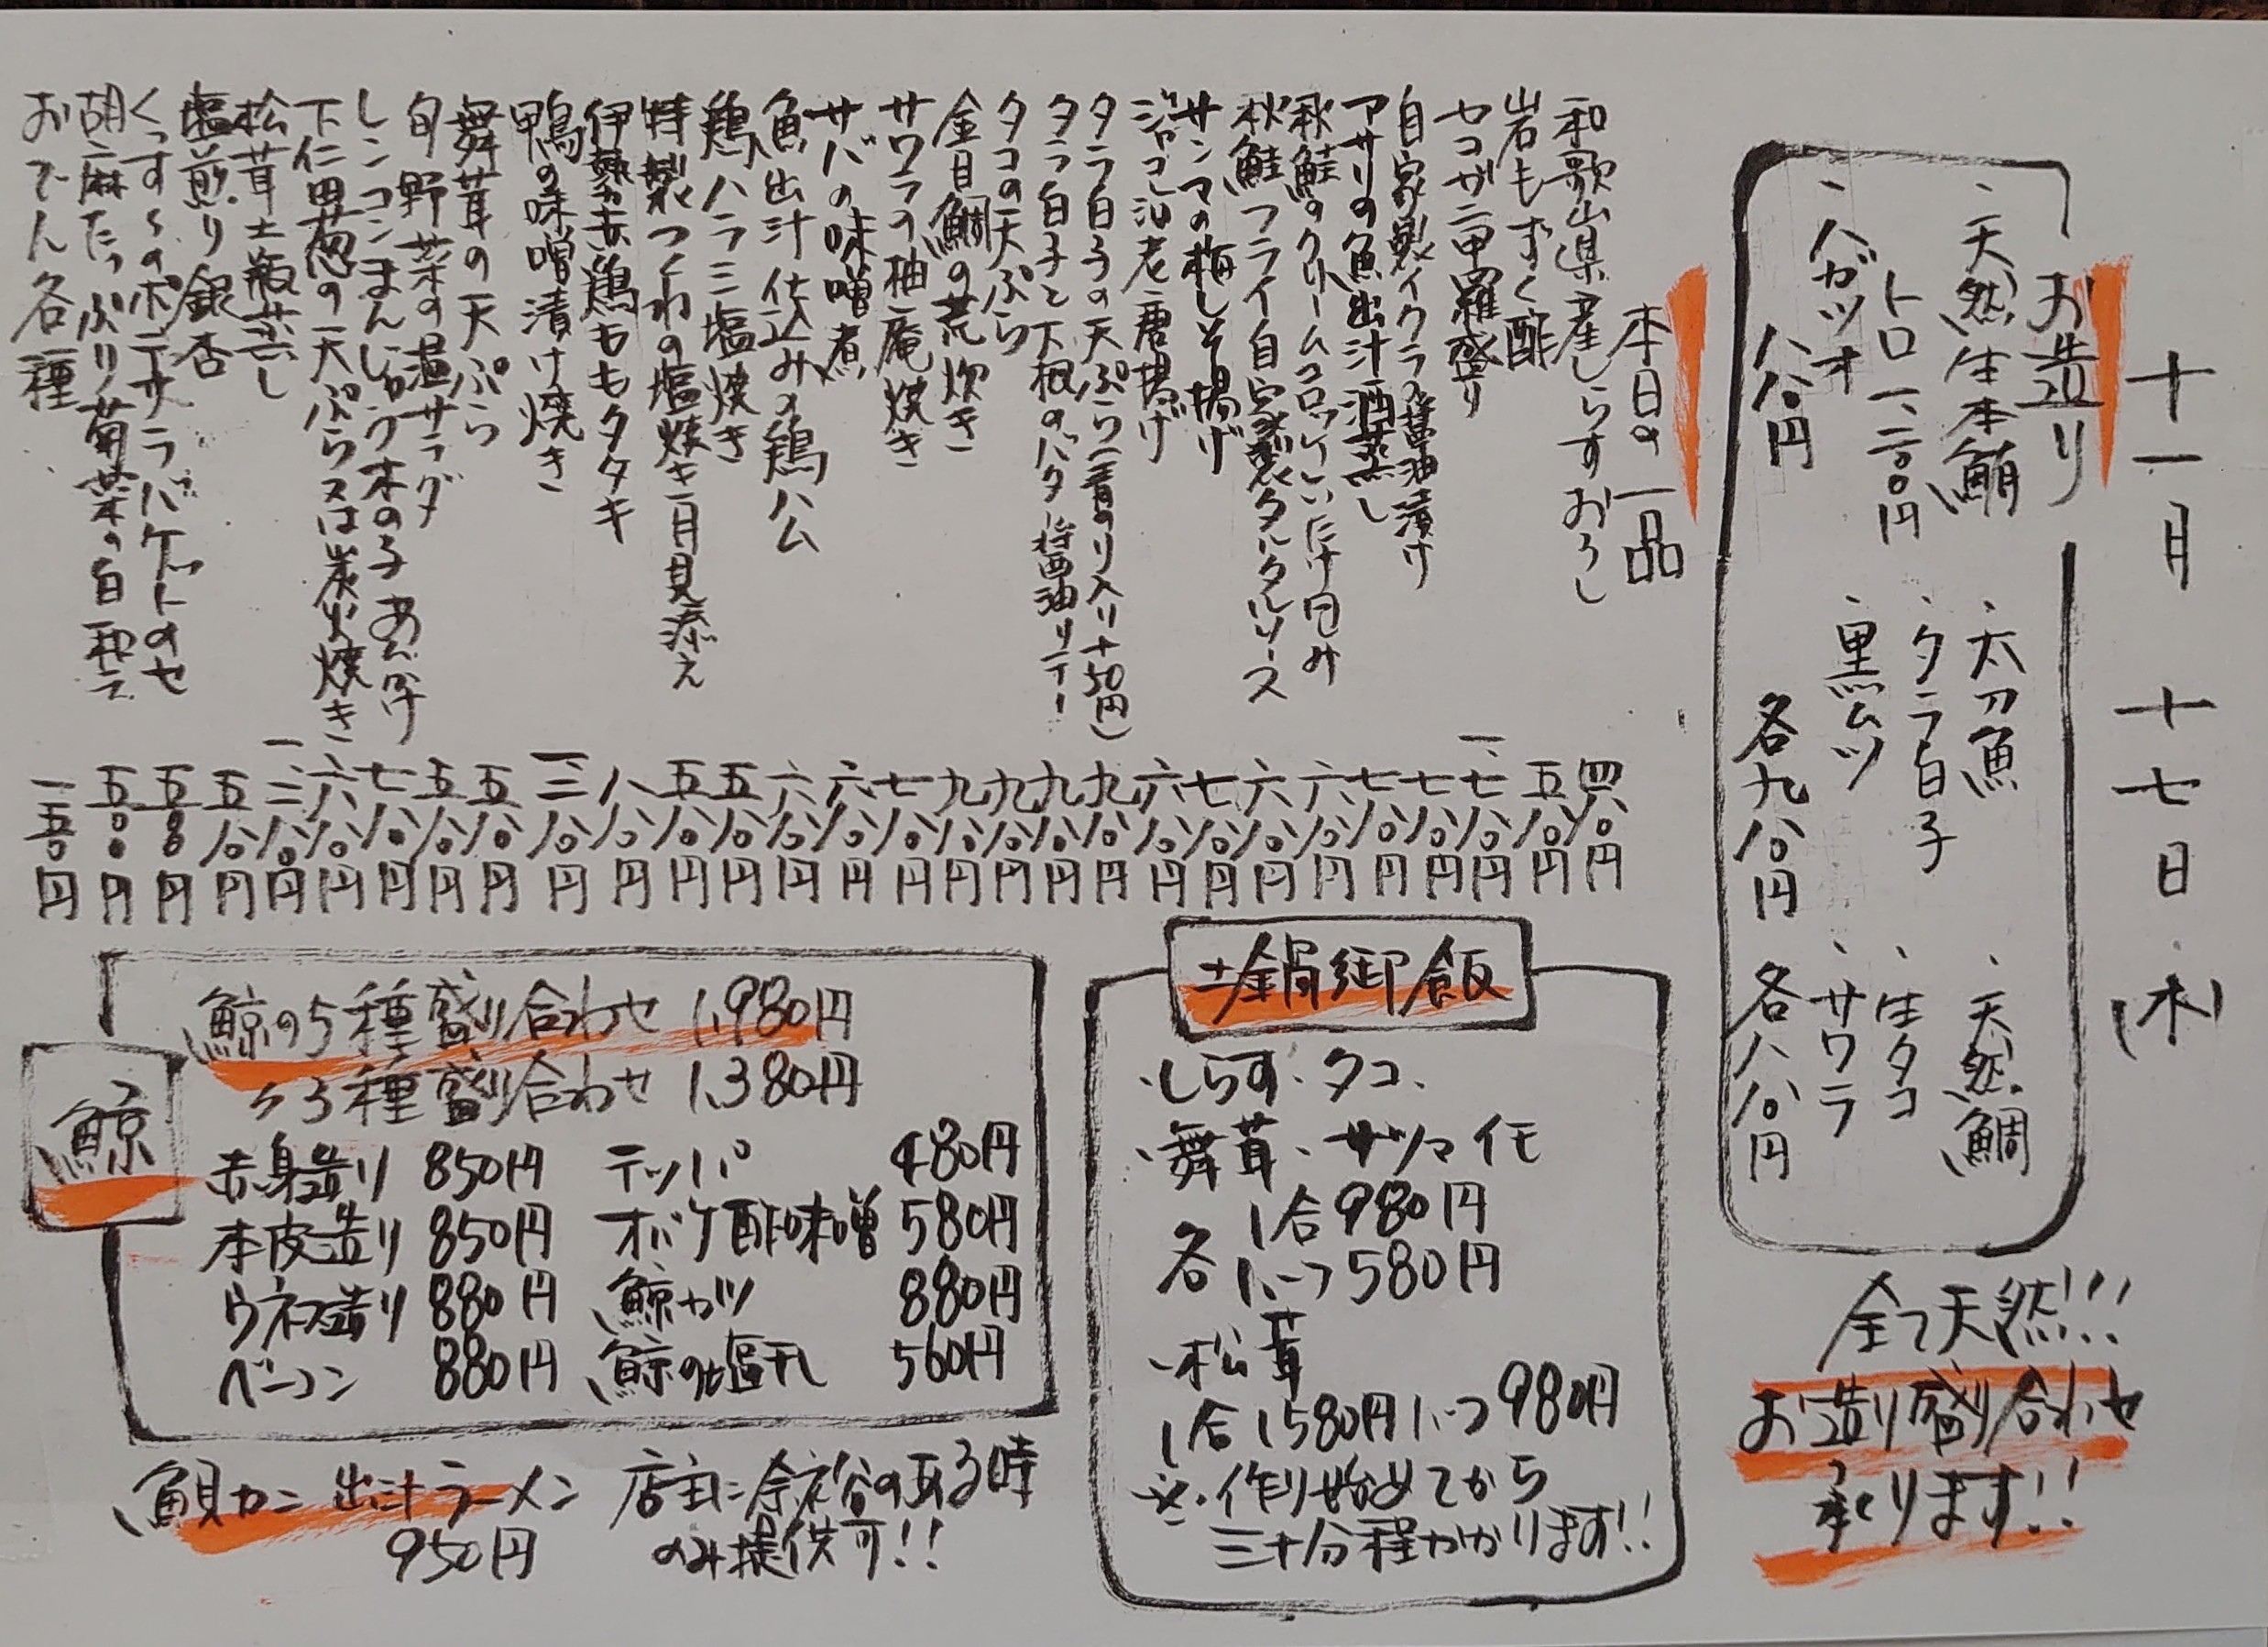 十一月十七日(木)
お造り
、天然生本鮪
トロ 一、二八〇円
、ハガツオ
八八〇円
、太刀魚
、タラ白子
、黒ムツ
各九八〇円
、天然鯛
、生タコ
、サワラ
各八八〇円
全て天然!!!
お造り盛り合わせ
承ります!!
本日の一品
和歌山県産しらすおろし 四八〇円
岩もずく酢 五八〇円
セコガニ甲羅盛り 一、七八〇円
自家製イクラ醤油漬け 七八〇円
アサリの魚出汁酒蒸し 七八〇円
秋鮭のクリームコロッケしいたけ包み 六八〇円
秋鮭フライ自家製タルタルソース 六八〇円
サンマの梅しそ揚げ 七八〇円
ジャコ海老唐揚げ 六八〇円
タラ白子の天ぷら(青のり入り+50円) 九八〇円
タラ白子と下根のバター醤油ソテー 九八〇円
タコの天ぷら 九八〇円
金目鯛の荒炊き 九八〇円
サワラの柚庵焼き 七八〇円
サバの味噌煮 六八〇円
魚出汁仕込みの鶏ハム 六八〇円
鶏ハラミ塩焼き 五八〇円
特製つくねの塩焼き月見添え 五八〇円
伊勢赤鶏ももタタキ 八八〇円
鴨の味噌漬け焼き 一、三八〇円
舞茸の天ぷら 五八〇円
旬野菜の温サラダ 五八〇円
レンコンまんじゅう木の子あんかけ 七八〇円
下仁田葱の天ぷら又は炭火焼き 六八〇円
松茸土瓶蒸し 一、二八〇円
塩煎り銀杏 五八〇円
くっすくのポテサラバケットのせ 五〇〇円
胡麻たっぷり菊菜の白和え 五〇〇円
おでん各種 一五〇円
土鍋御飯
・しらす・タコ、
、舞茸、サツマイモ
各 1合980円
1/2つ580円
、松茸
1合1580円1/2つ980円
※・作り始めてから
三十分程かかります!!
鯨
鯨の5種盛り合わせ 1,980円
〃3種盛り合わせ 1,380円
赤身造り 850円 テッパ 480円
本皮造り 850円 オバケ酢味噌 580円
ウネス造り 880円 鯨カツ 880円
ベーコン 880円 鯨の塩干し 560円
魚貝カニ出汁ラーメン
950円
店主に余裕の有る時
のみ提供可!!